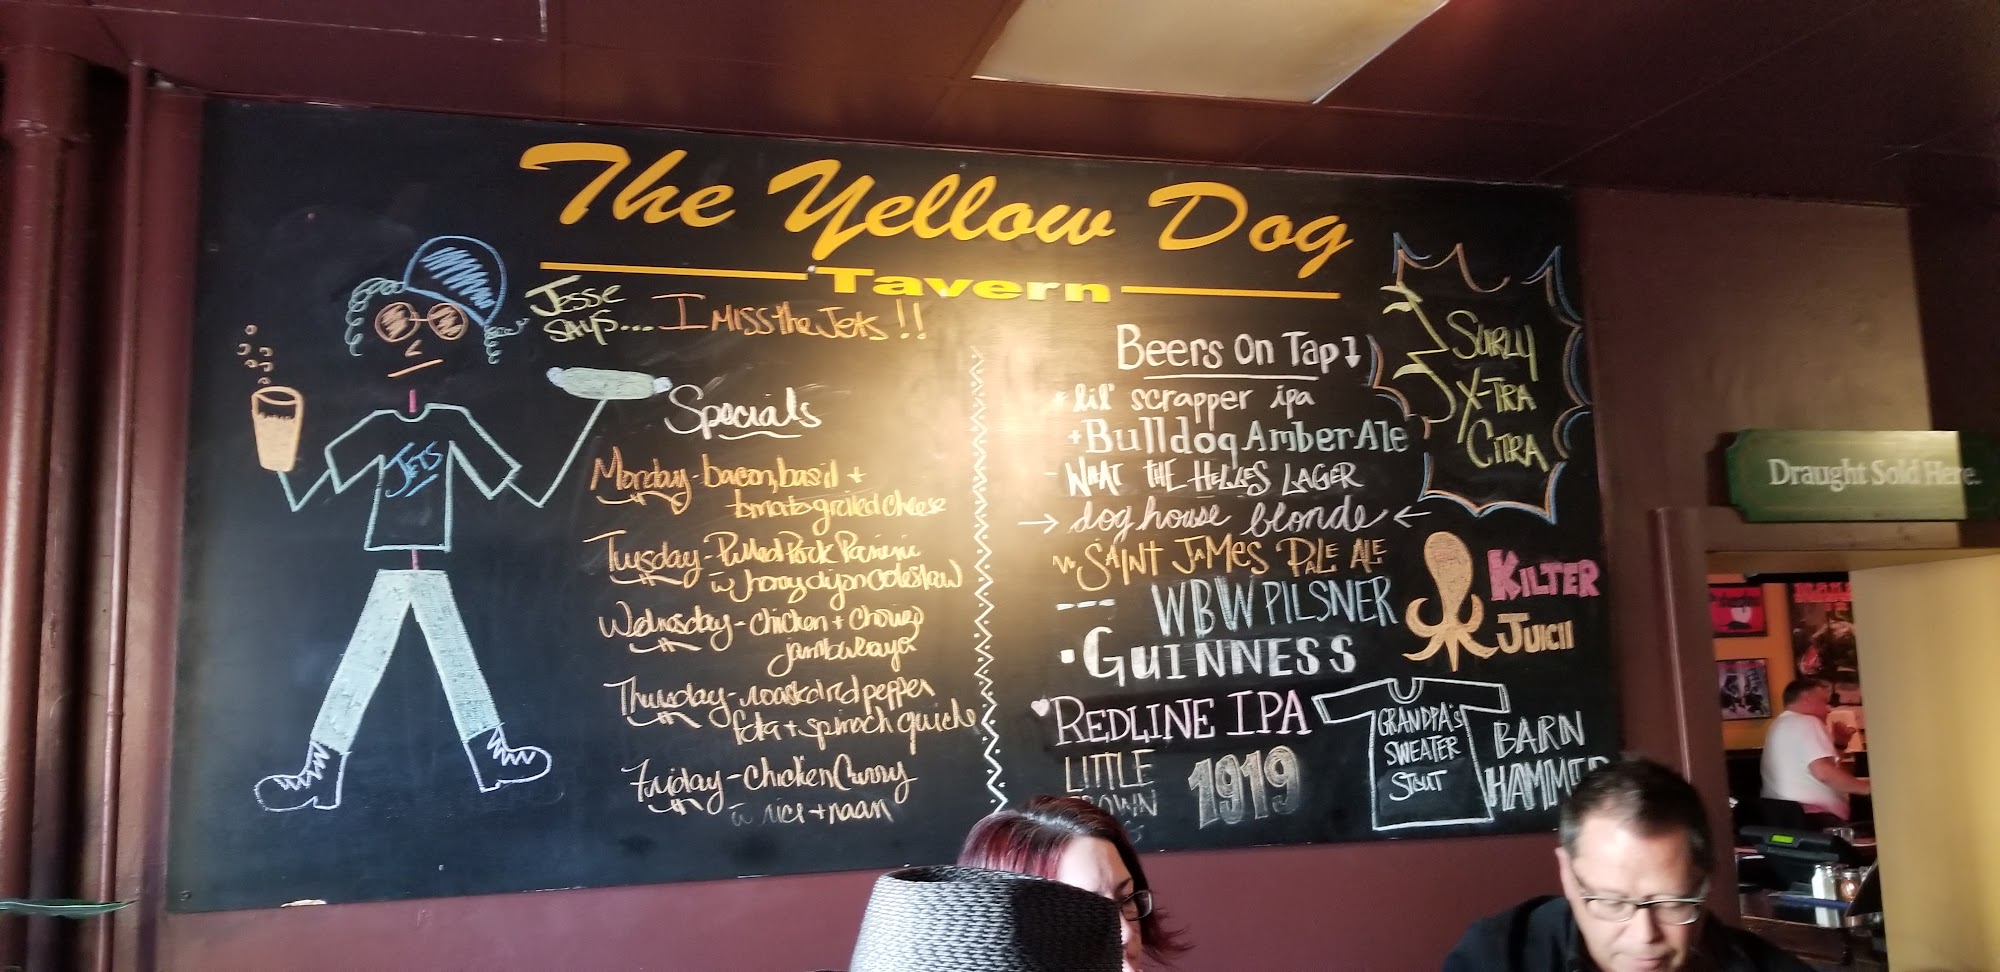 The Yellow Dog
Tavern
Jesse
says... I miss the Jets!!
JETS
Specials
Monday - bacon, basil +
tomato grilled cheese
Tuesday - Pulled Pork Panini
w honey dijon coleslaw
Wednesday - chicken + chorizo
jambalaya
Thursday - roasted red pepper
feta + spinach quiche
Friday - chicken Curry
w rice + naan
Beers On Tap
lil' scrapper ipa
+ Bulldog Amber Ale
- WHAT THE HELLES LAGER
→ dog house blonde ←
SAINT JAMES PALE ALE
--- WBW PILSNER
• GUINNESS
♥ REDLINE IPA
LITTLE
1919
SURLY
X-TRA
CITRA
KILTER
JUICII
GRANDPA'S
SWEATER
STOUT
BARN
Draught Sold Here.